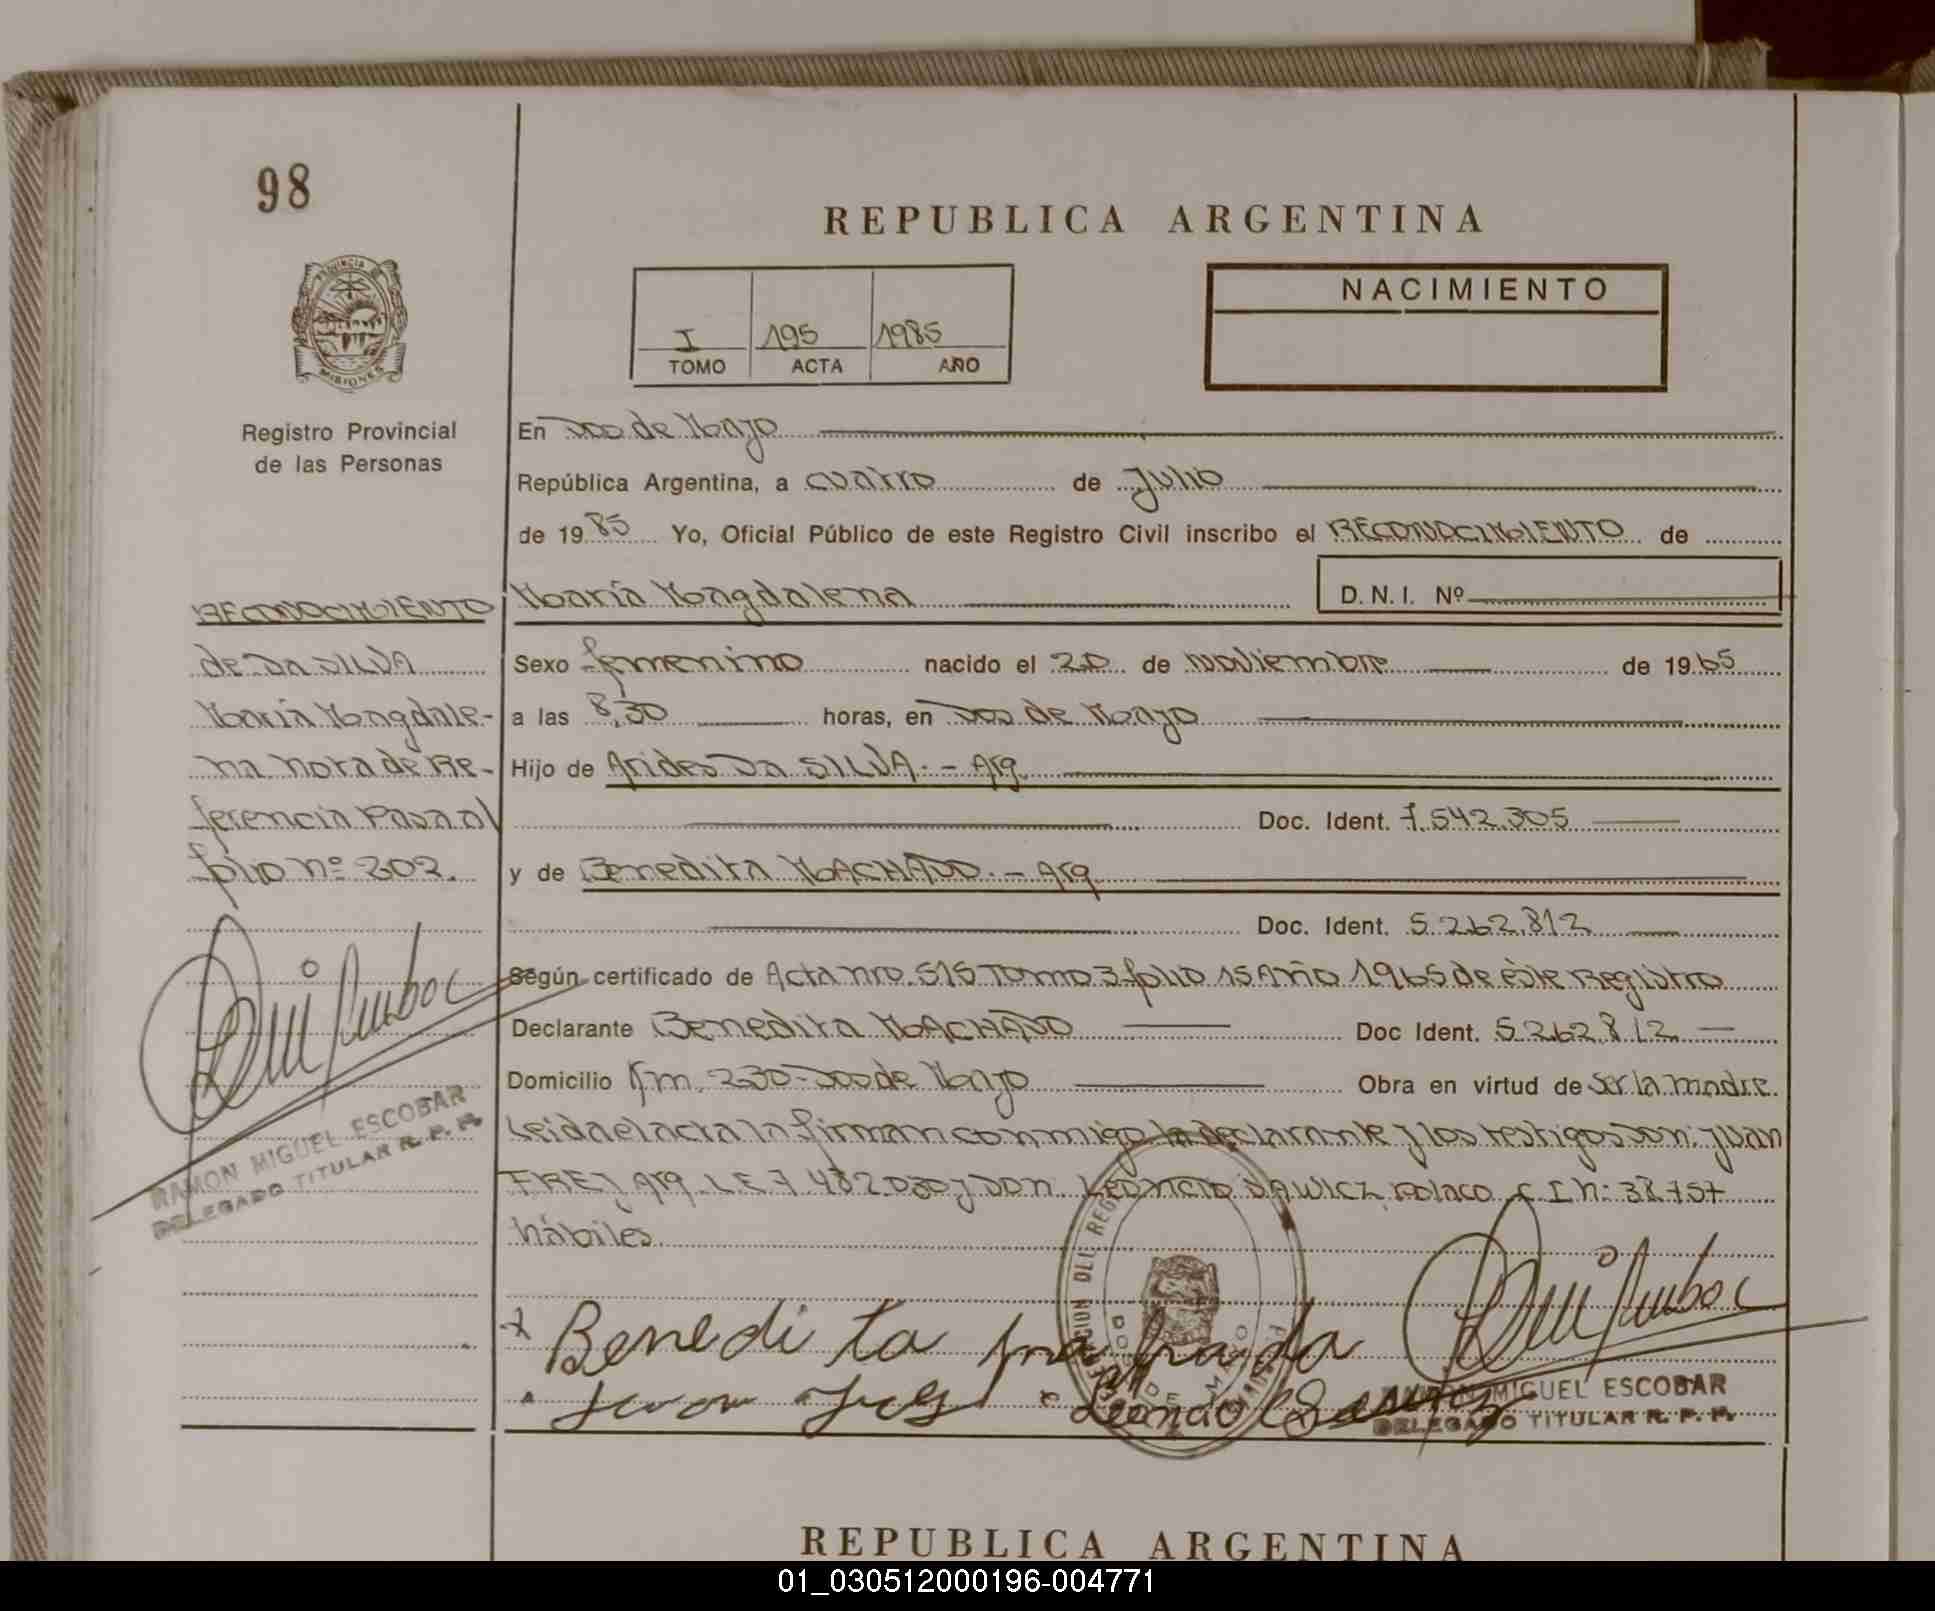 98
REPUBLICA ARGENTINA
NACIMIENTO
I 195 1985
TOMO ACTA AÑO
PROVINCIA DE
MISIONES
Registro Provincial
de las Personas
En Dos de Mayo
República Argentina, a cuatro de Julio
de 1985 Yo, Oficial Público de este Registro Civil inscribo el RECONOCIMIENTO de
María Magdalena D.N.I. Nº
RECONOCIMIENTO
de Da SILVA
María Magdale-
na nota de Re-
ferencia Pasa al
folio nº 302.
Sexo femenino nacido el 20 de noviembre de 1965
a las 8,30 horas, en Dos de Mayo
Hijo de Arides Da SILVA.- Arg.
Doc. Ident. 7.542.305
y de Benedita MACHADO.- Arg
Doc. Ident. 5.262.812
Según certificado de Acta nro. 515 Tomo 3 folio 15 Año 1965 de éste Registro
Declarante Benedita MACHADO Doc Ident. 5.262.812
Domicilio Km. 230-Dos de Mayo Obra en virtud de ser la madre.
Leida el acta la firman conmigo la declarante y los testigos Don: Juan
FREY Arg. L.E 7.482.030 y Don Leoncio SAWICZ, Polaco C I n: 38.757
hábiles
Benedita machado
RAMON MIGUEL ESCOBAR
DELEGADO TITULAR R. P. P.
RAMON MIGUEL ESCOBAR
DELEGADO TITULAR R. P. P.
DOS DE MAYO
REPUBLICA ARGENTINA
01_030512000196-004771